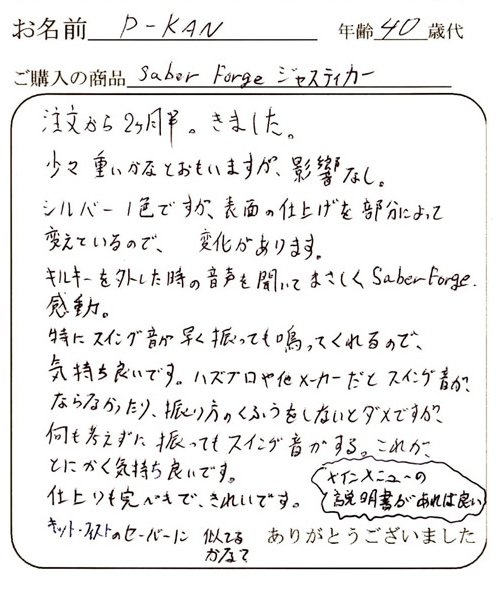 お名前 P-KAN 年齢 40 歳代
ご購入の商品 Saber Forge ジャスティカー
注文から2ヶ月半。きました。
少々重いかなとおもいますが、影響なし。
シルバー1色ですが、表面の仕上げを部分によって
変えているので、変化があります。
キルキーを外した時の音声を聞いてまさしくSaber Forge.
感動。
特にスイング音が早く振っても鳴ってくれるので、
気持ち良いです。ハズブロや他メーカーだとスイング音が、
ならなかったり、振り方のくふうをしないとダメですが、
何も考えずに振ってもスイング音がする。これが、
とにかく気持ち良いです。
仕上りも完ペキで、きれいです。
メインメニューの
説明書があれば良い
キット・フィストのセーバーに 似てる
かなて
ありがとうございました